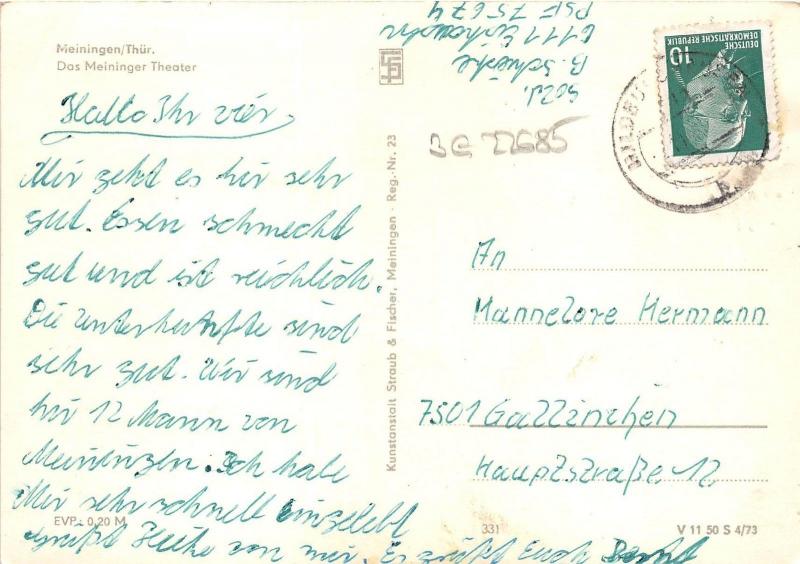 Meiningen/Thür.
Das Meininger Theater
Hallo Ihr vier,
Mir geht es hir sehr
gut. Essen schmeckt
gut und ist reichlich.
Die Unterkünfte sind
sehr gut. Wir sind
hir 12 Mann von
Meiningen. Ich habe
Mir sehr schnell eingelebt
grüßt Heike von mir. Es grüßt Euch Bernt
EVP: 0,20 M
Kunstanstalt Straub & Fischer, Meiningen · Reg.-Nr. 23
Sold.
B.
6111
PSF 75674
BG 22685
DEUTSCHE
DEMOKRATISCHE REPUBLIK
10
An
Hannelore Hermann
7501 Gallinchen
Hauptstraße 12
331
V 11 50 S 4/73